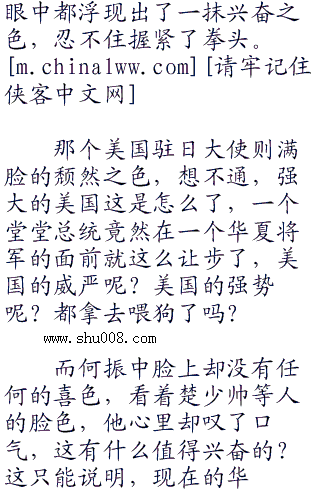 眼中都浮现出了一抹兴奋之
色，忍不住握紧了拳头。
[m.chinalww.com][请牢记住
侠客中文网]
那个美国驻日大使则满
脸的颓然之色，想不通，强
大的美国这是怎么了，一个
堂堂总统竟然在一个华夏将
军的面前就这么让步了，美
国的威严呢？美国的强势
呢？都拿去喂狗了吗？
www.shu008.com
而何振中脸上却没有任
何的喜色，看着楚少帅等人
的脸色，他心里却叹了口
气，这有什么值得兴奋的？
这只能说明，现在的华